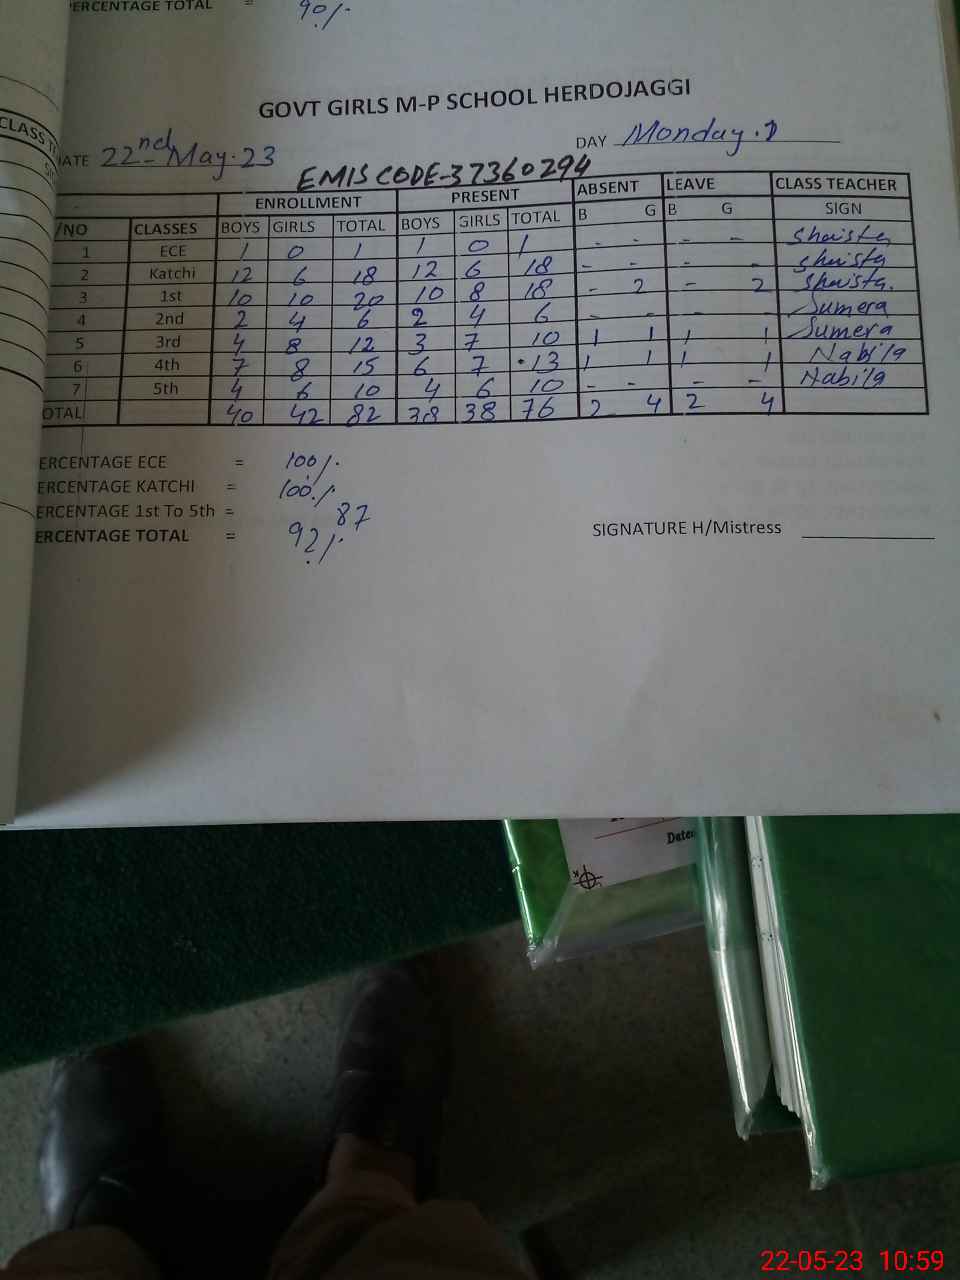 ERCENTAGE TOTAL = 90/.
GOVT GIRLS M-P SCHOOL HERDOJAGGI
ATE 22nd May.23 DAY Monday.
EMIS CODE-37360294
ENROLLMENT PRESENT ABSENT LEAVE CLASS TEACHER
/NO CLASSES BOYS GIRLS TOTAL BOYS GIRLS TOTAL B G B G SIGN
1 ECE 1 0 1 1 0 1 - - - - Shaista
2 Katchi 12 6 18 12 6 18 - - - - Shaista
3 1st 10 10 20 10 8 18 - 2 - 2 Shaista.
4 2nd 2 4 6 2 4 6 - - - - Sumera
5 3rd 4 8 12 3 7 10 1 1 1 1 Sumera
6 4th 7 8 15 6 7 13 1 1 1 1 Nabila
7 5th 4 6 10 4 6 10 - - - - Nabila
OTAL 40 42 82 38 38 76 2 4 2 4
ERCENTAGE ECE = 100/.
ERCENTAGE KATCHI = 100/.
ERCENTAGE 1st To 5th = 87
ERCENTAGE TOTAL = 92/.
SIGNATURE H/Mistress
Date
22-05-23 10:59